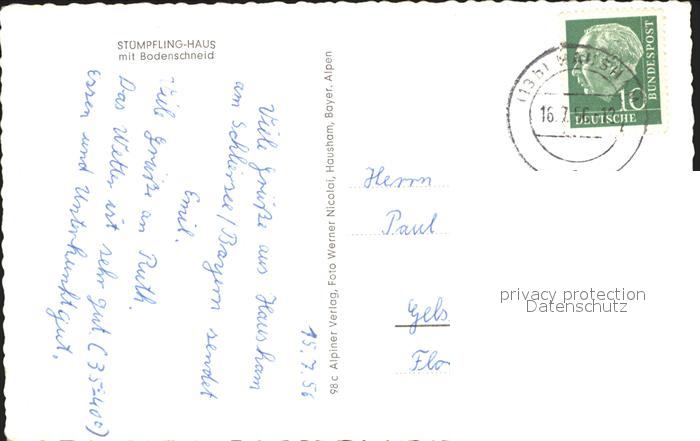 STÜMPFLING-HAUS
mit Bodenschneid
15.7.56
Viele Grüße aus Hausham
am Schliersee/Bayern sendet
Emil.
Viele Grüße an Ruth.
Das Wetter ist sehr gut (35-40°)
Essen und Unterkunft gut.
98c Alpiner Verlag, Foto Werner Nicolai, Hausham, Bayer. Alpen
(13b)
16.7.56
10
DEUTSCHE
BUNDESPOST
Herrn
Paul
Gels
Flo
privacy protection
Datenschutz